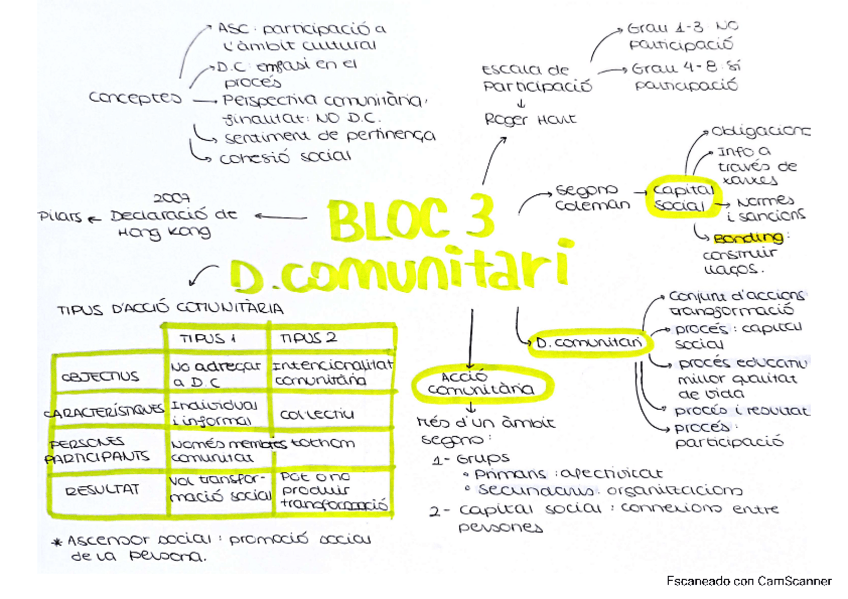 ASC: participació a
l'àmbit cultural
D.C: èmfasi en el
procés
Conceptes
Perspectiva comunitària,
finalitat: NO D.C.
sentiment de pertinença
cohesió social
Escala de
Participació
Roger Hart
Grau 1-3: NO
participació
Grau 4-8: sí
participació
Segons
Coleman
Capital
social
Obligacions
Info a
través de
xarxes
Normes
i sancions
Bonding:
construir
llaços.
2007
Pilars
Declaració de
Hong Kong
BLOC 3
D.comunitari
TIPUS D'ACCIÓ COMUNITÀRIA
TIPUS 1 TIPUS 2
OBJECTIUS No adreçar a D.C Intencionalitat comunitària
CARACTERÍSTIQUES Individual i informal Col·lectiu
PERSONES PARTICIPANTS Només membres comunitat tothom
RESULTAT Vol transfor-mació social Pot o no produir transformació
* Ascensor social: promoció social
de la persona.
Acció
comunitària
Més d'un àmbit
segons:
1- Grups
° Primaris: afectivitat
° Secundaris: organitzacions
2- Capital social: connexions entre
persones
D. comunitari
Conjunt d'accions:
transformació
procés: capital
social
procés educatiu
millor qualitat
de vida
procés i resultat
procés:
participació
Escaneado con CamScanner